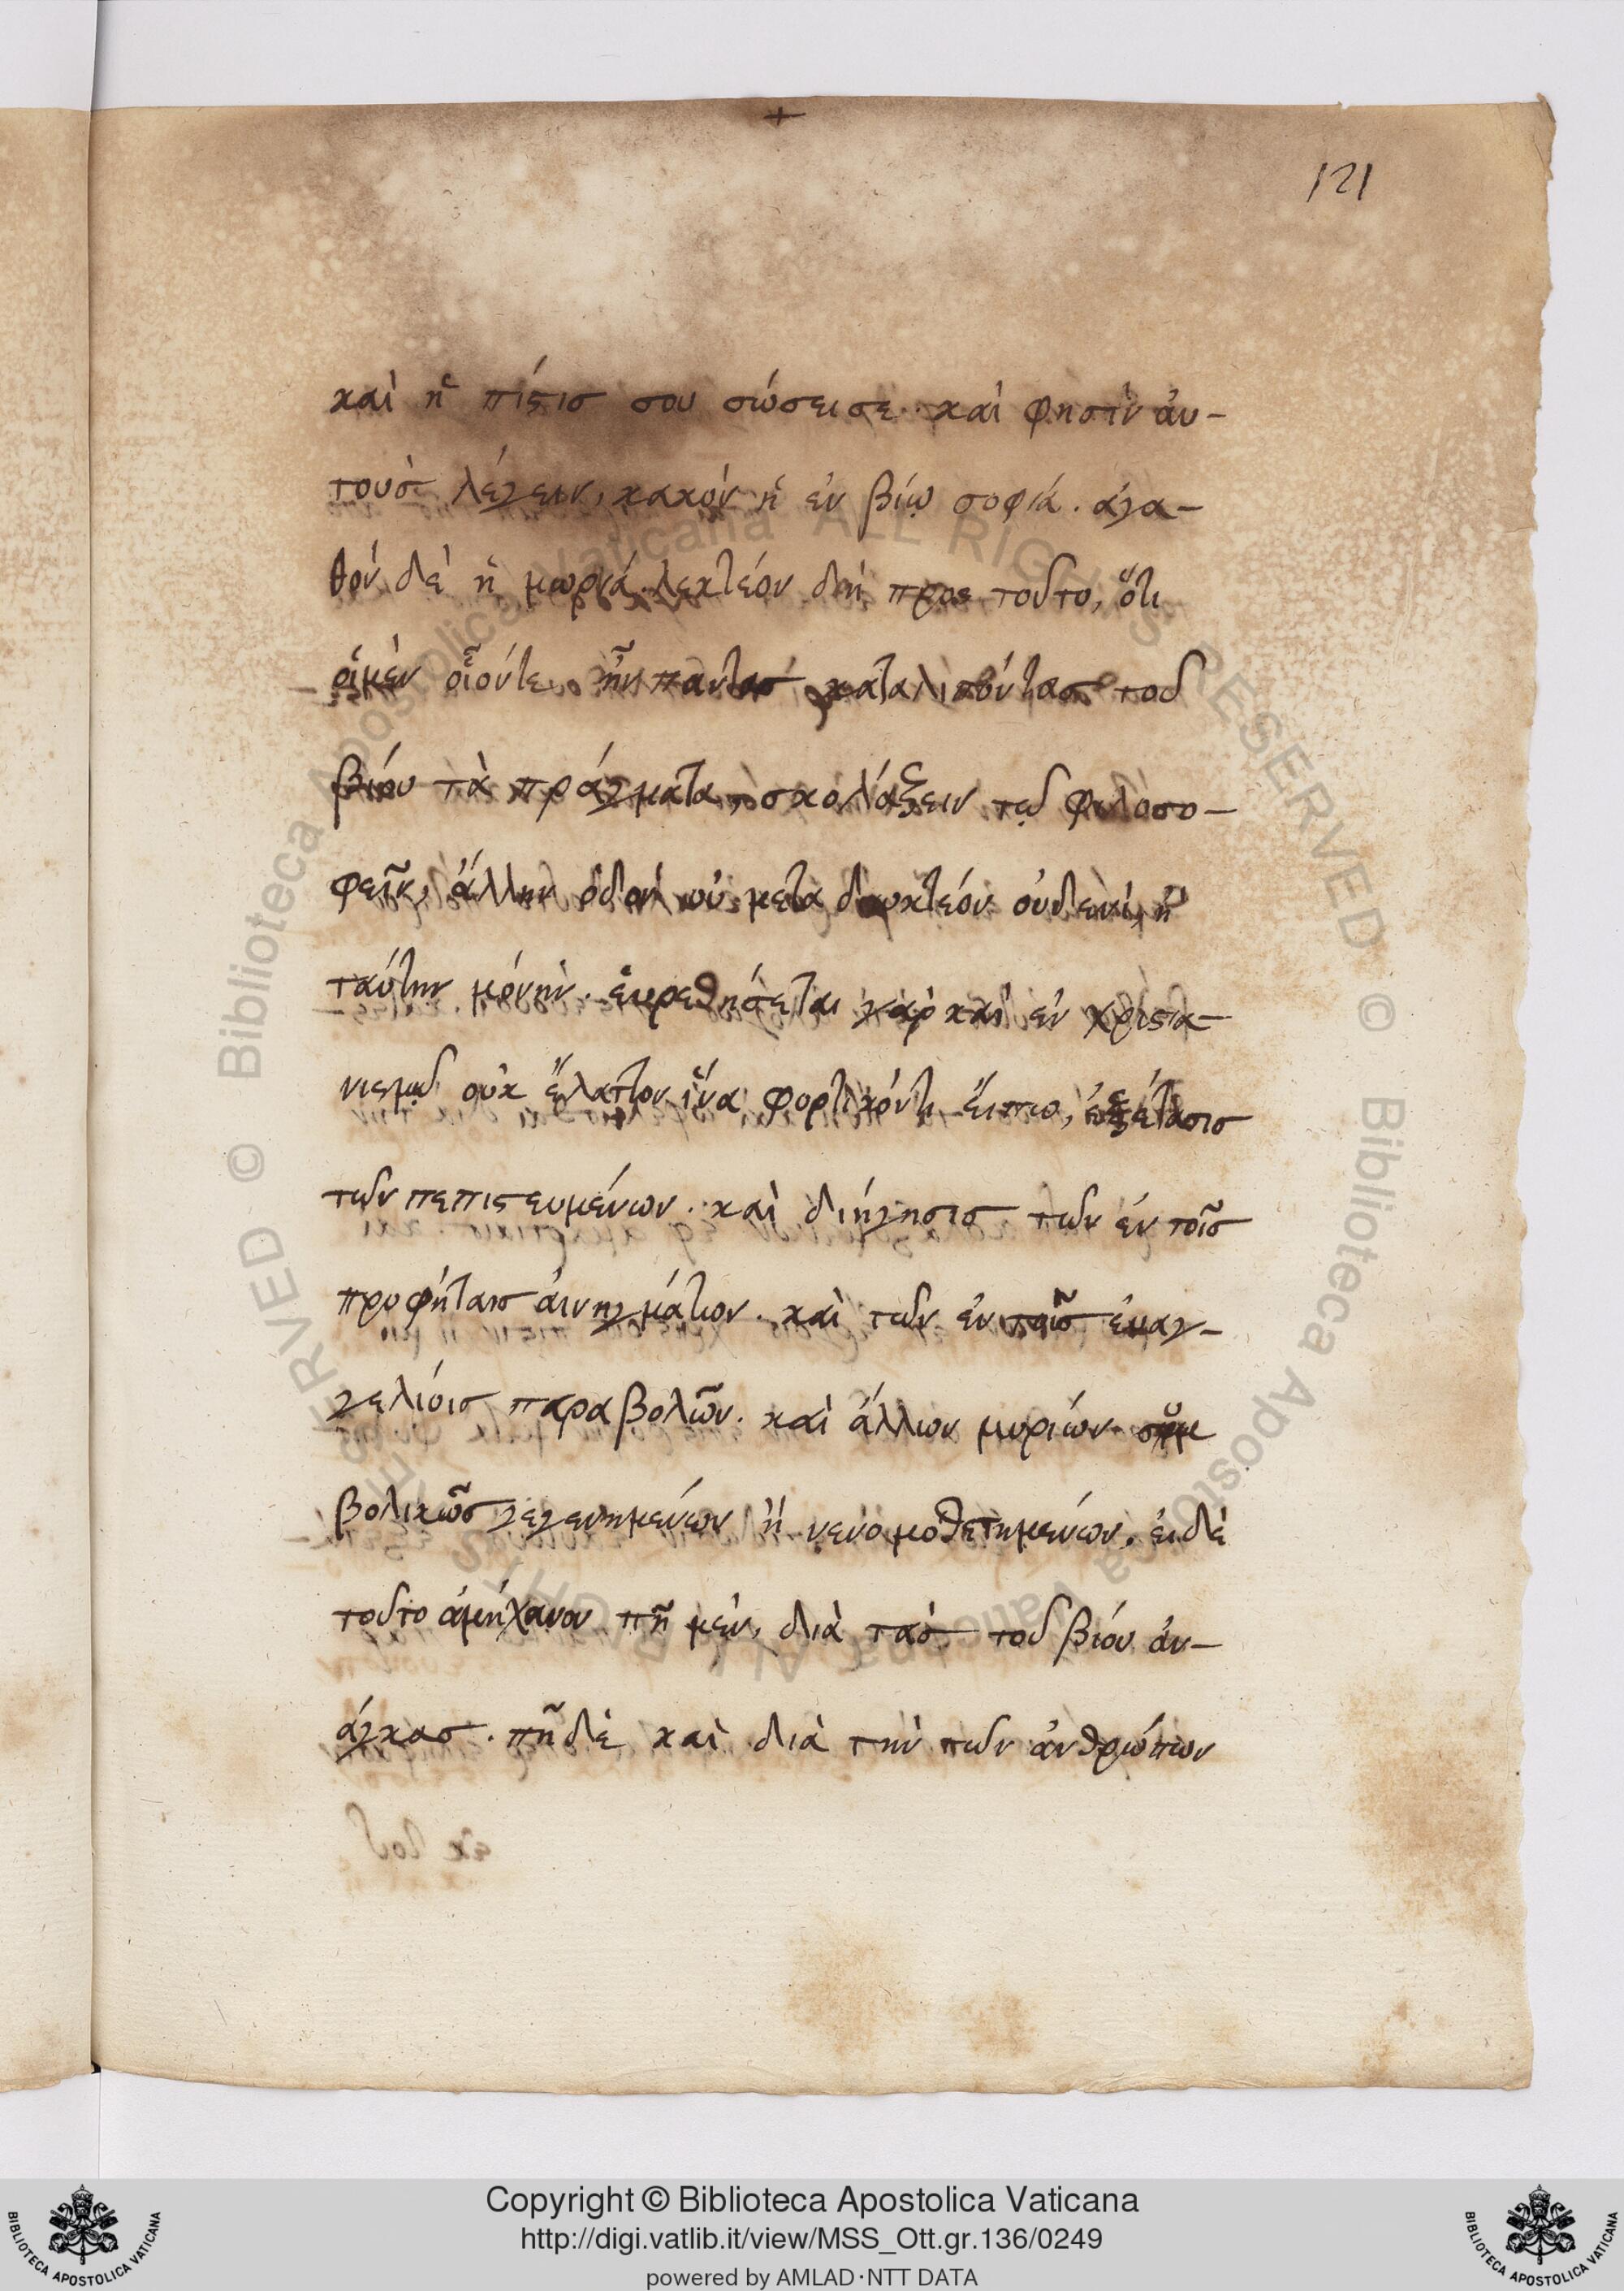 +
121
καὶ ἡ πίστισ σου σώσεισε. καὶ φησὶν ἀυ-
τουσ λέγειν, κακὸν ἡ ἐν βίῳ σοφιά. ἀγα-
θόν δὲ ἡ μωριά. λεκτέον δὴ προς τοῦτο, ὅτι
οἱμὲν οἷόντε ἦν παντασ καταλιπόντασ τοῦ
βιόυ τὰ πράγματα, σχολάζειν τῷ φιλοσο-
φεῖν, ἄλλην ὁδὸν οὐ μεταδιωκτεόν οὐδενί, ἢ
ταύτην μόνην. ἑυρεθήσεται γὰρ καὶ ἐν χριστια-
νισμῷ οὐκ ἔλαττον ἵνα φορτικόντι ἔιπω, ἐξέτασισ
τῶν πεπιστευμένων. καὶ διήγησισ τῶν ἐν τοῖσ
προφήταισ ἀινιγμάτων. καὶ τῶν ἐν τοῖσ ἐυαγ-
γελίοισ παραβολῶν. καὶ ἄλλων μυριών συμ
βολικῶσ γεγενημενων ἢ νενομοθετημενων. ἐιδὲ
τοῦτο ἀμήχανον πῆ μὲν, διὰ τασ τοῦ βιόυ ἀν-
άγκασ. πῆδὲ καὶ διὰ τὴν τῶν ἀνθρώπων
© Biblioteca Apostolica Vaticana ALL RIGHTS RESERVED
© Biblioteca Apostolica Vaticana ALL RIGHTS RESERVED
Copyright © Biblioteca Apostolica Vaticana
http://digi.vatlib.it/view/MSS_Ott.gr.136/0249
powered by AMLAD·NTT DATA
BIBLIOTECA APOSTOLICA VATICANA
BIBLIOTECA APOSTOLICA VATICANA